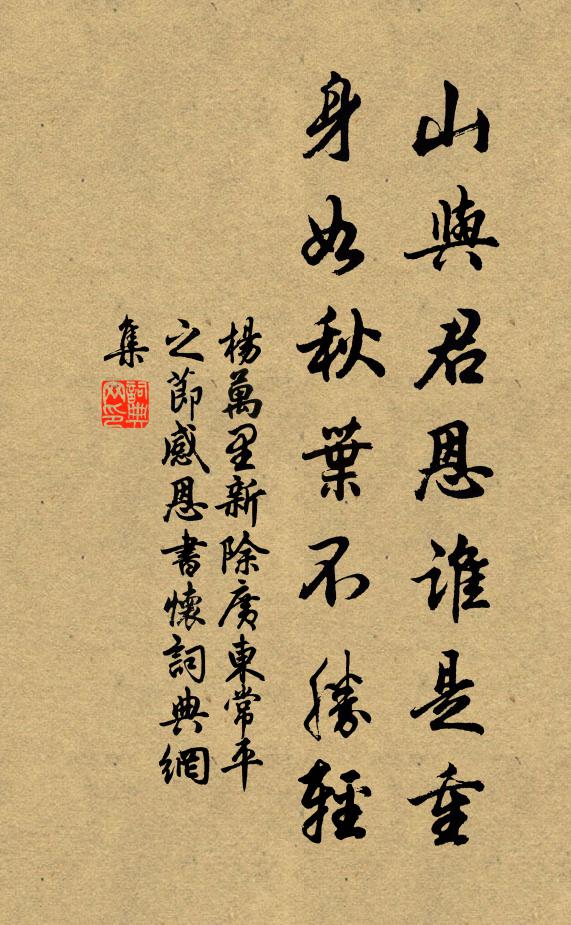 山與君恩誰是重
身如秋葉不勝輕
楊萬里新除廣東常平
之節感恩書懷詞典網
集
詞典
网印